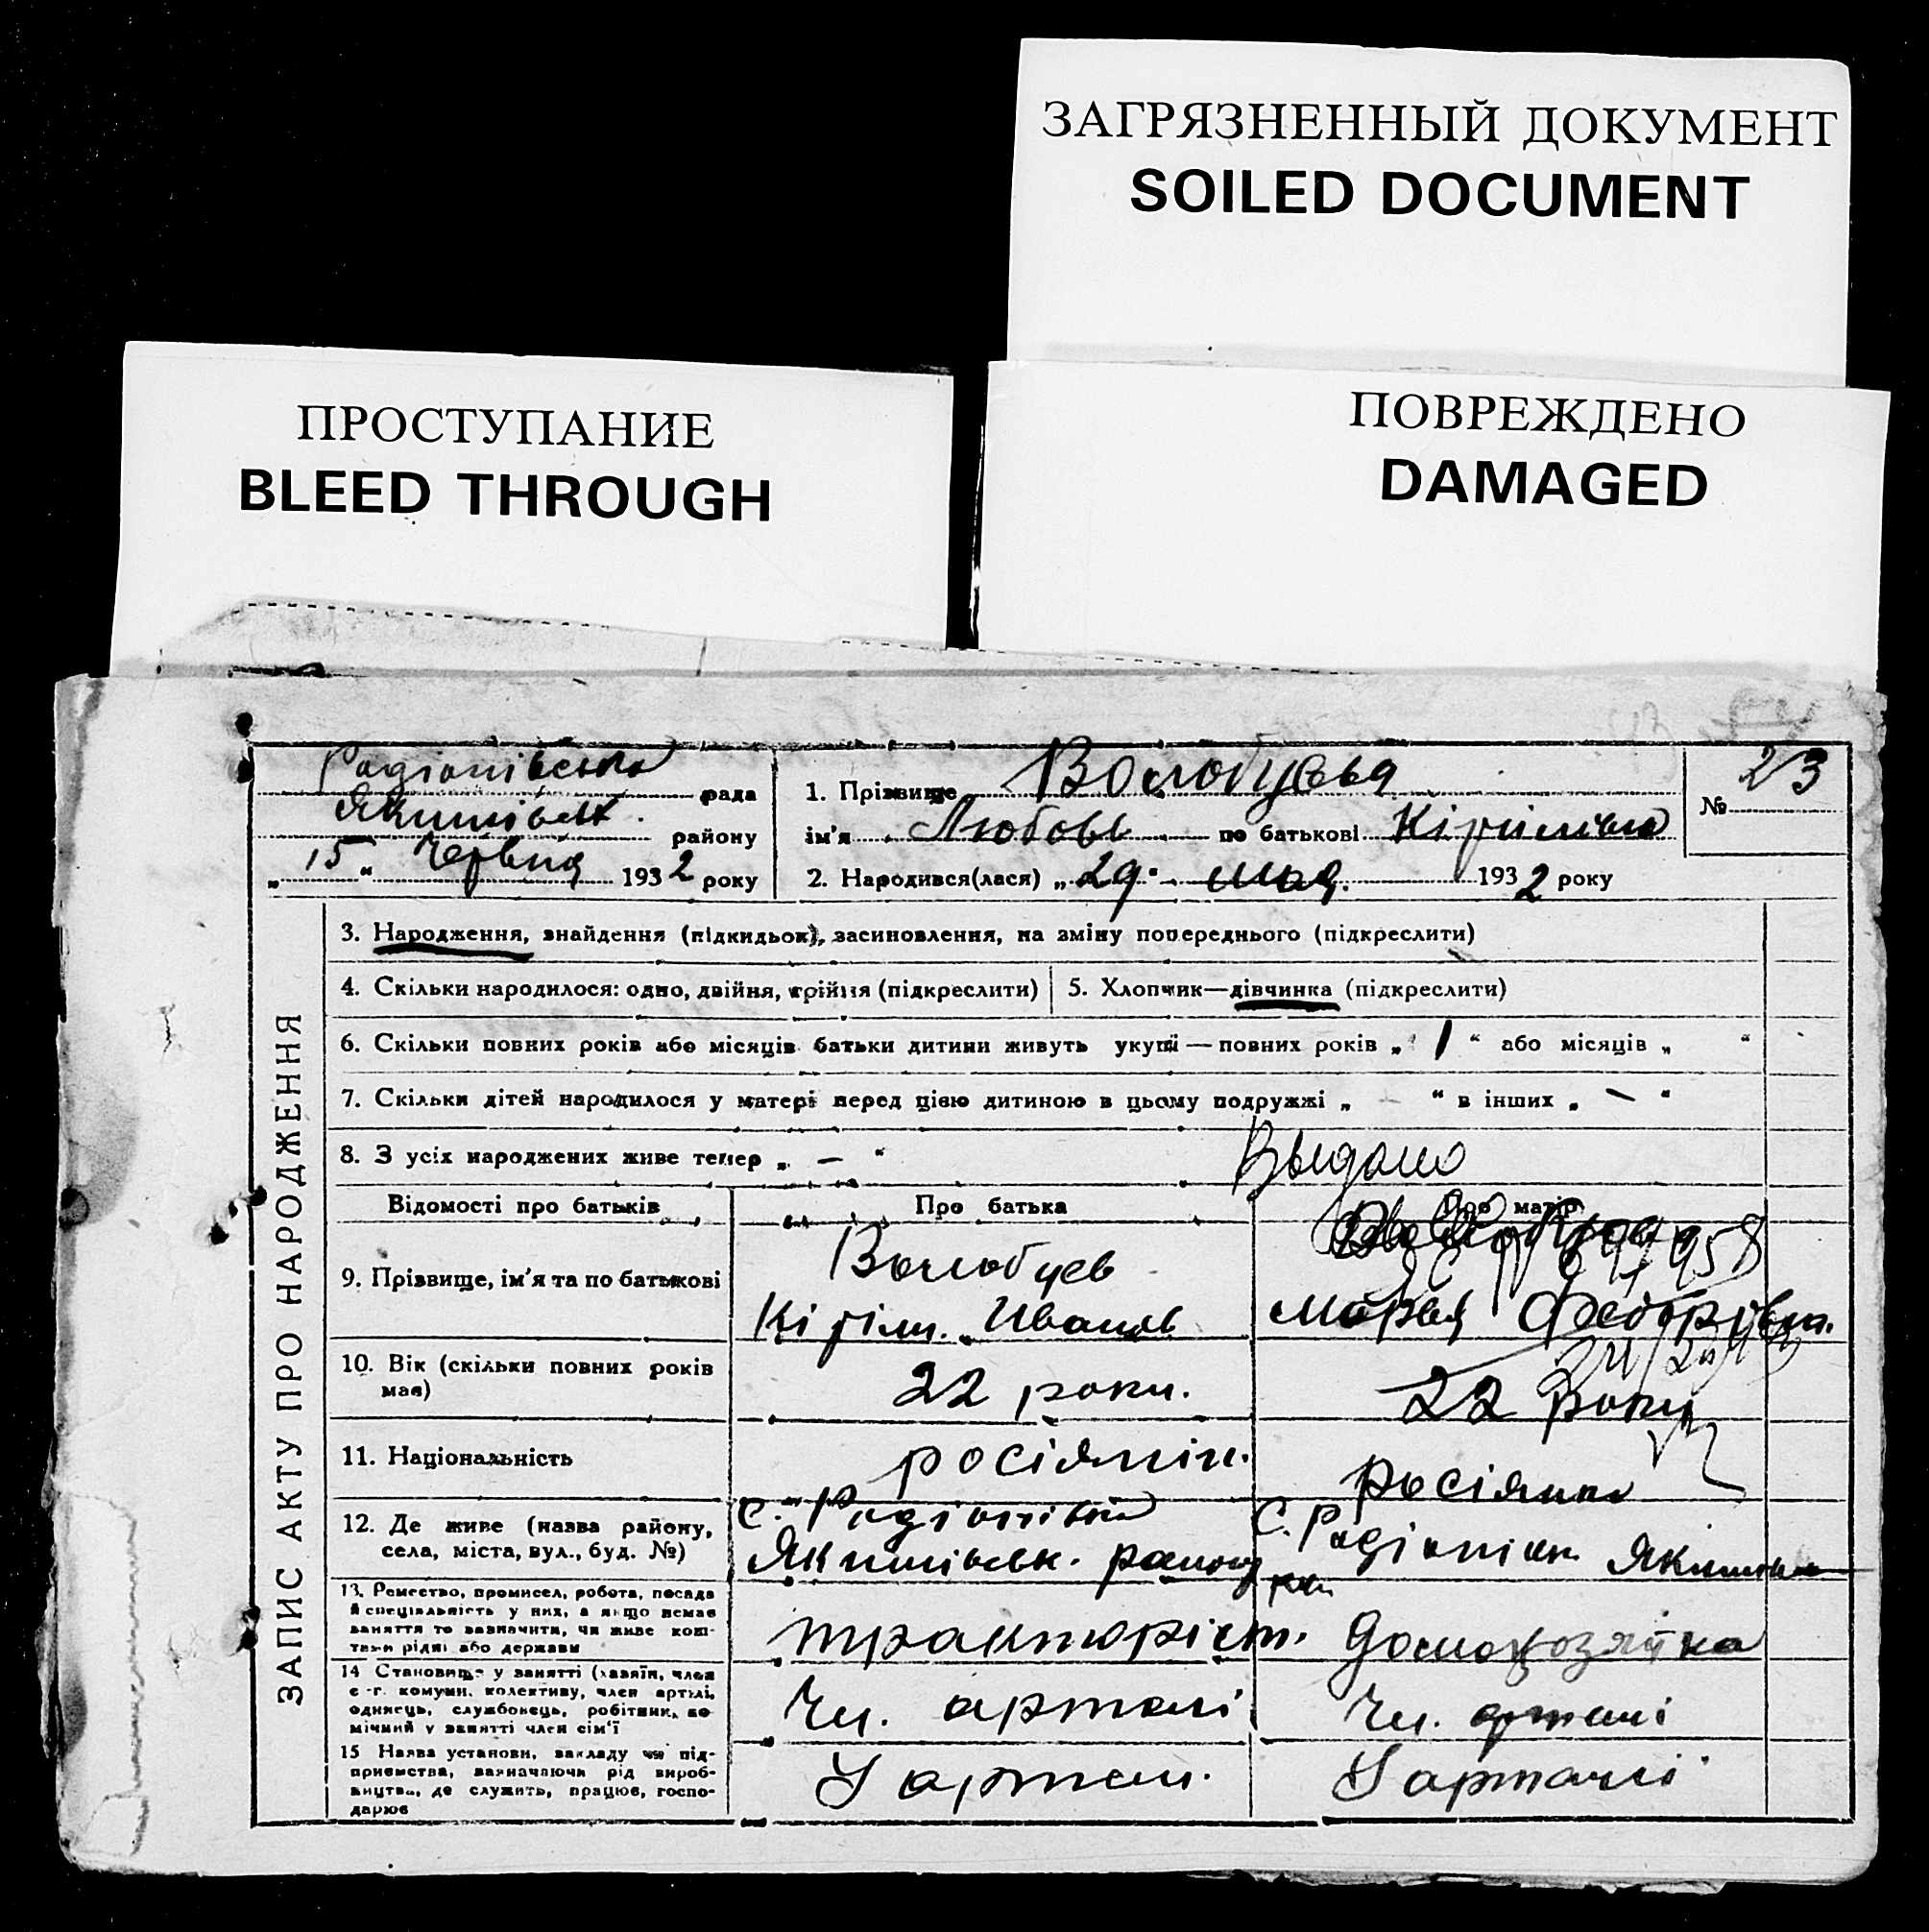 ЗАГРЯЗНЕННЫЙ ДОКУМЕНТ
SOILED DOCUMENT
ПРОСТУПАНИЕ
BLEED THROUGH
ПОВРЕЖДЕНО
DAMAGED
Радіонівська рада
Якимівськ. району
„15“ Червня 1932 року
1. Прізвище Волобуєва
ім'я Любовь по батькові Кірілівна
2. Народився(лася) „29“ мая 1932 року
№ 23
ЗАПИС АКТУ ПРО НАРОДЖЕННЯ
3. Народження, знайдення (підкидьок), засиновлення, на зміну попереднього (підкреслити)
4. Скільки народилося: одно, двійня, трійня (підкреслити)
5. Хлопчик—дівчинка (підкреслити)
6. Скільки повних років або місяців батьки дитини живуть укупі — повних років „1“ або місяців „ “
7. Скільки дітей народилося у матері перед цією дитиною в цьому подружжі „ — “ в інших „ — “
8. З усіх народжених живе тепер „ — “
Выдано
Відомості про батьків
Про батька
Про матір
9. Прізвище, ім'я та по батькові
Волобуев
Кіріл. Иванов
Марья Федорівн.
10. Вік (скільки повних років має)
22 роки.
22 роки
11. Національність
росіянін.
росіянка
12. Де живе (назва району,
села, міста, вул., буд. №)
с. Радіонівка
Якимівськ. району
с. Радіонівк. Якимівськ
рай
13. Ремество, промисел, робота, посада
й спеціальність у них, а якщо немає
заняття то зазначити, чи живе кош-
тами рідні або держави
тракторіст.
домохозяйка
14 Становище у занятті (хазяїн, член
с.-г. комуни, колективу, член артілі,
одинець, службовець, робітник, по-
мічний у занятті член сім'ї
Чл. артелі
Чл. артелі
15 Назва установи, закладу чи під-
приємства, зазначаючи рід вироб-
ництва, де служить, працює, госпо-
дарює
У артел.
У артелі